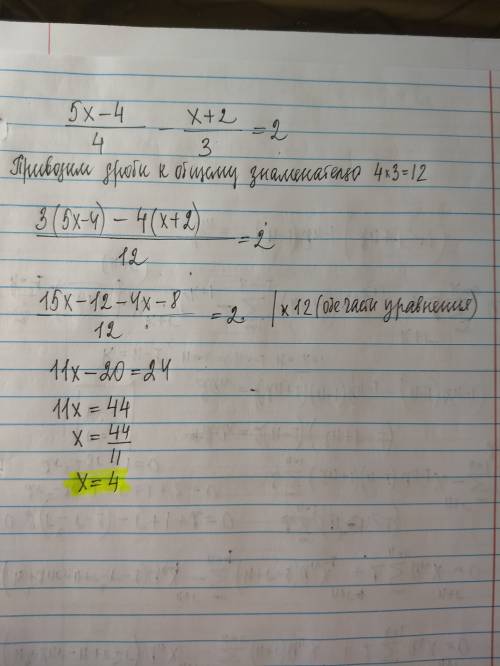 (5x-4)/4 - (x+2)/3 = 2
Приводим дроби к общему знаменателю 4×3=12
(3(5x-4) - 4(x+2))/12 = 2
(15x-12-4x-8)/12 = 2 |×12 (обе части уравнения)
11x-20=24
11x = 44
x = 44/11
x = 4